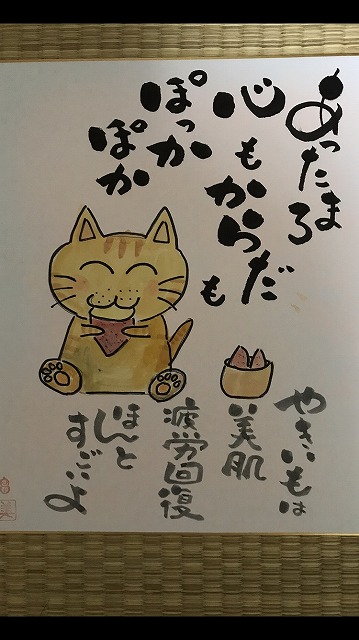 あったまろ
心もからだも
ぽっか
ぽか
やきいもは
美肌
疲労回復
ほんと
すごいよ
美